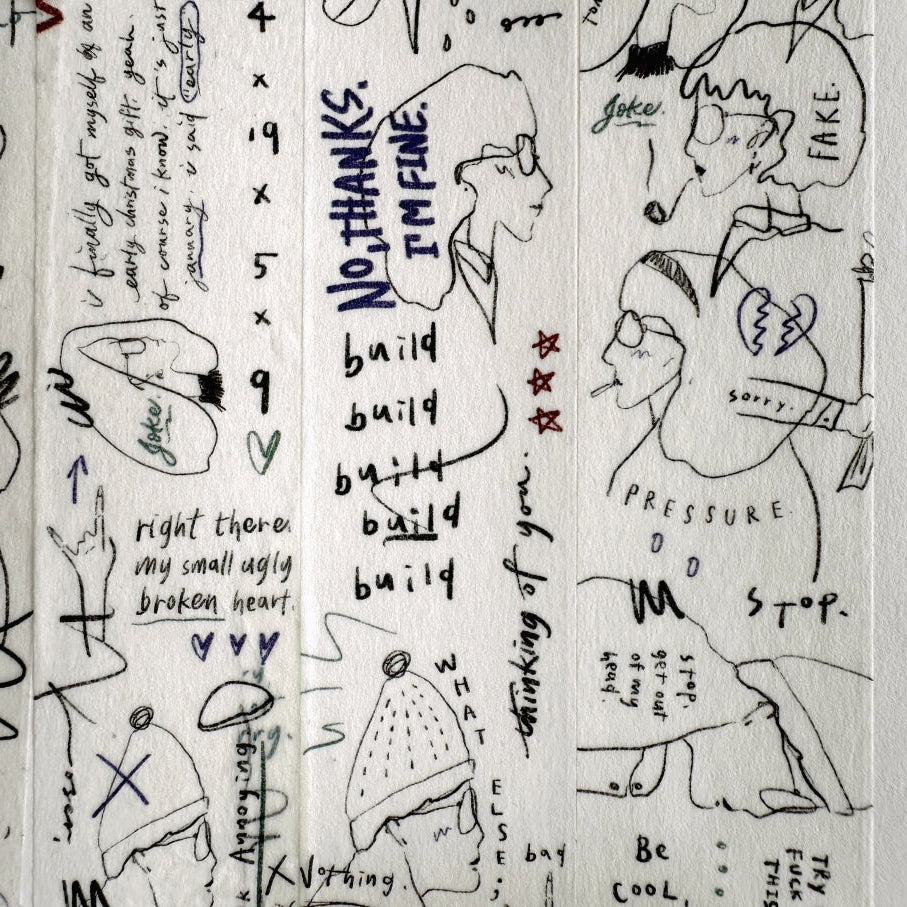 i finally got myself an
early christmas gift. yeah.
of course i know. it's just
january. i said "early
4
x
19
x
5
x
9
Joke.
right there.
my small ugly
broken heart.
Annoying
NO, THANKS.
I'M FINE.
build
build
build
build
build
thinking of you.
WHAT
ELSE;
Nothing.
bad
Joke.
FAKE.
sorry.
PRESSURE.
STOP.
stop.
get out
of my
head.
Be
COOL,
TRY
FUCK
THIS